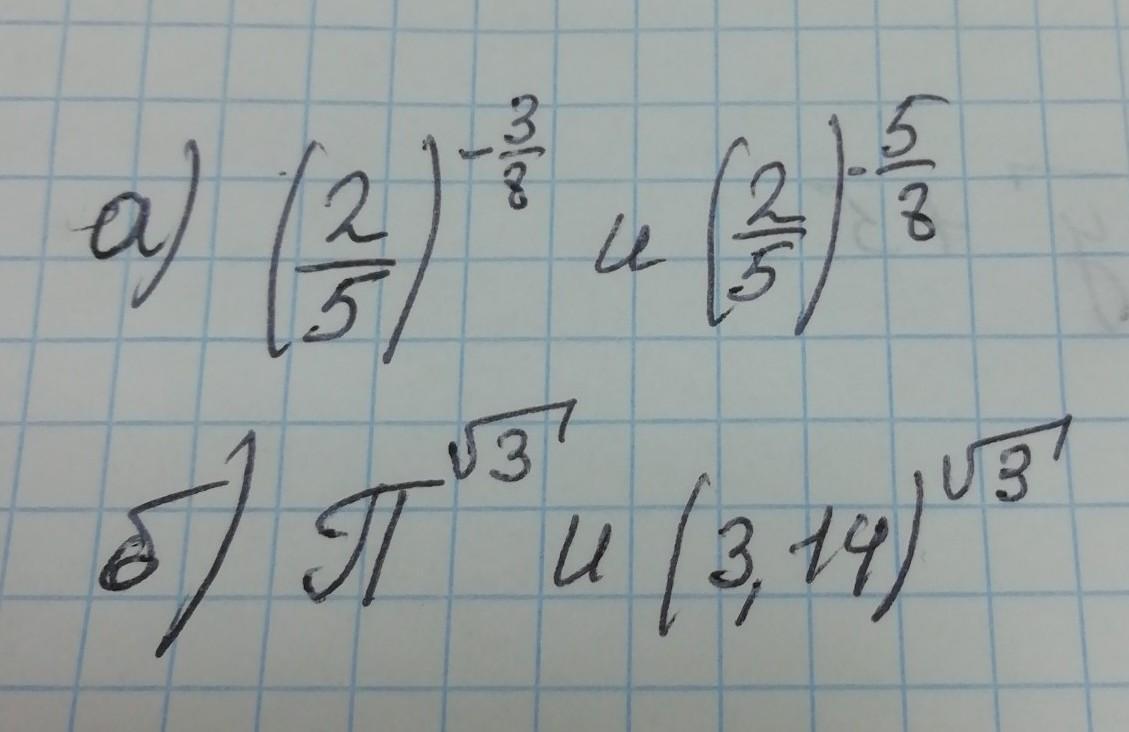 а) (2/5)^(-3/8) и (2/5)^(-5/8)
б) π^√3 и (3,14)^√3